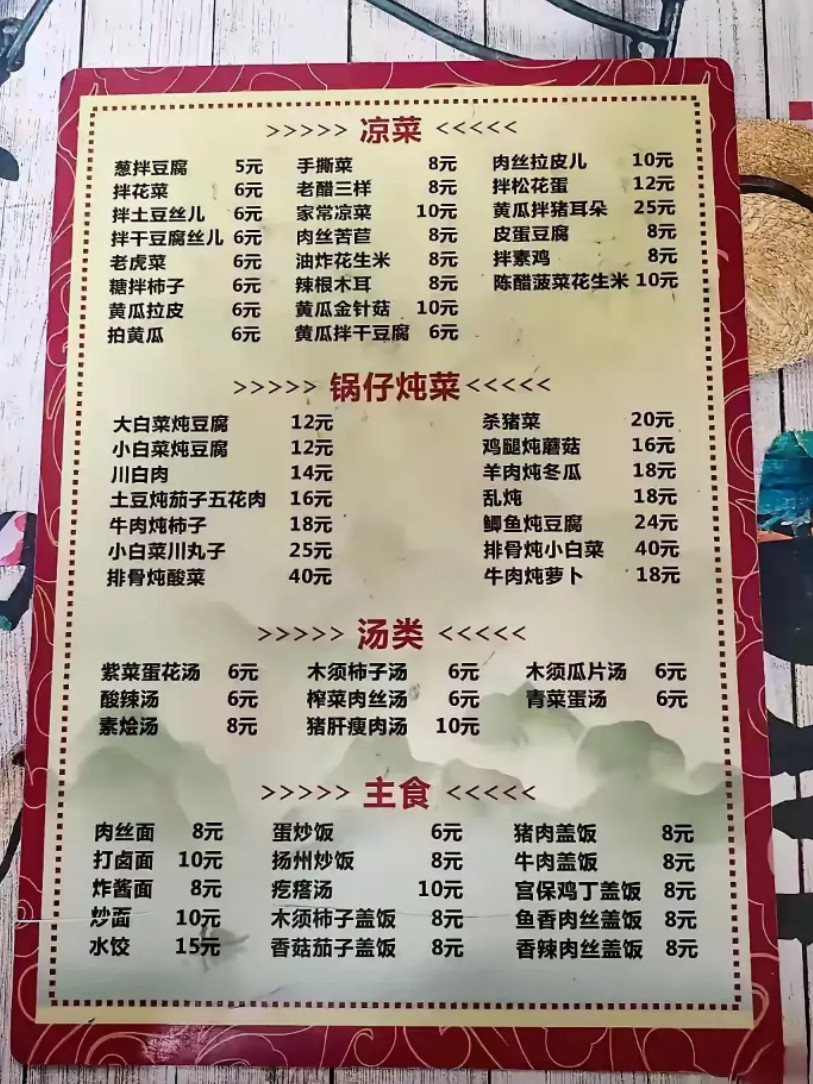 >>>>> 凉菜 <<<<<
葱拌豆腐 5元 手撕菜 8元 肉丝拉皮儿 10元
拌花菜 6元 老醋三样 8元 拌松花蛋 12元
拌土豆丝儿 6元 家常凉菜 10元 黄瓜拌猪耳朵 25元
拌干豆腐丝儿 6元 肉丝苦苣 8元 皮蛋豆腐 8元
老虎菜 6元 油炸花生米 8元 拌素鸡 8元
糖拌柿子 6元 辣根木耳 8元 陈醋菠菜花生米 10元
黄瓜拉皮 6元 黄瓜金针菇 10元
拍黄瓜 6元 黄瓜拌干豆腐 6元
>>>>> 锅仔炖菜 <<<<<
大白菜炖豆腐 12元 杀猪菜 20元
小白菜炖豆腐 12元 鸡腿炖蘑菇 16元
川白肉 14元 羊肉炖冬瓜 18元
土豆炖茄子五花肉 16元 乱炖 18元
牛肉炖柿子 18元 鲫鱼炖豆腐 24元
小白菜川丸子 25元 排骨炖小白菜 40元
排骨炖酸菜 40元 牛肉炖萝卜 18元
>>>>> 汤类 <<<<<
紫菜蛋花汤 6元 木须柿子汤 6元 木须瓜片汤 6元
酸辣汤 6元 榨菜肉丝汤 6元 青菜蛋汤 6元
素烩汤 8元 猪肝瘦肉汤 10元
>>>>> 主食 <<<<<
肉丝面 8元 蛋炒饭 6元 猪肉盖饭 8元
打卤面 10元 扬州炒饭 8元 牛肉盖饭 8元
炸酱面 8元 疙瘩汤 10元 宫保鸡丁盖饭 8元
炒面 10元 木须柿子盖饭 8元 鱼香肉丝盖饭 8元
水饺 15元 香菇茄子盖饭 8元 香辣肉丝盖饭 8元